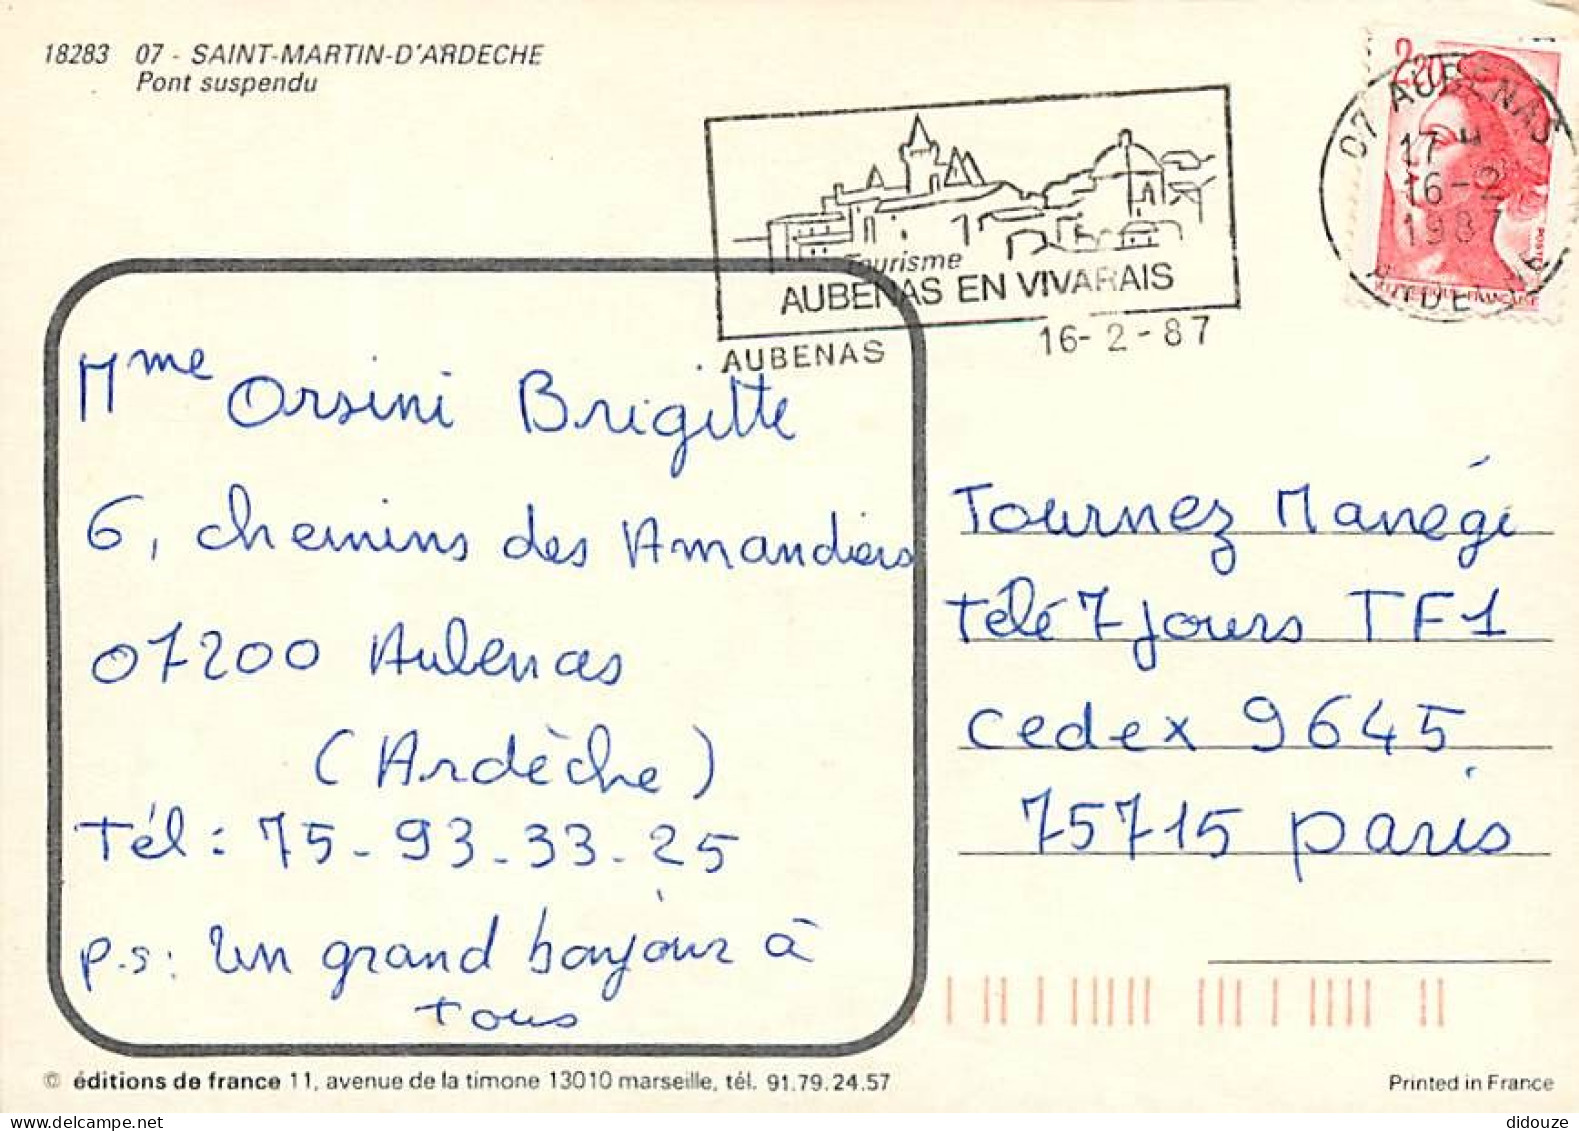 18283 07 - SAINT-MARTIN-D'ARDECHE
Pont suspendu
Tourisme
AUBENAS EN VIVARAIS
AUBENAS
16-2-87
2,20
07 AUBENAS
17 H
16-2
1987
ARDECHE
Mme Orsini Brigitte
6, chemins des Amandiers
07200 Aubenas
(Ardèche)
Tél : 75-93-33-25
p.s: Un grand bonjour à
tous
Tournez Manégi
Télé 7 Jours TF1
cedex 9645
75715 paris
© éditions de france 11, avenue de la timone 13010 marseille, tél. 91.79.24.57
Printed in France
didouze